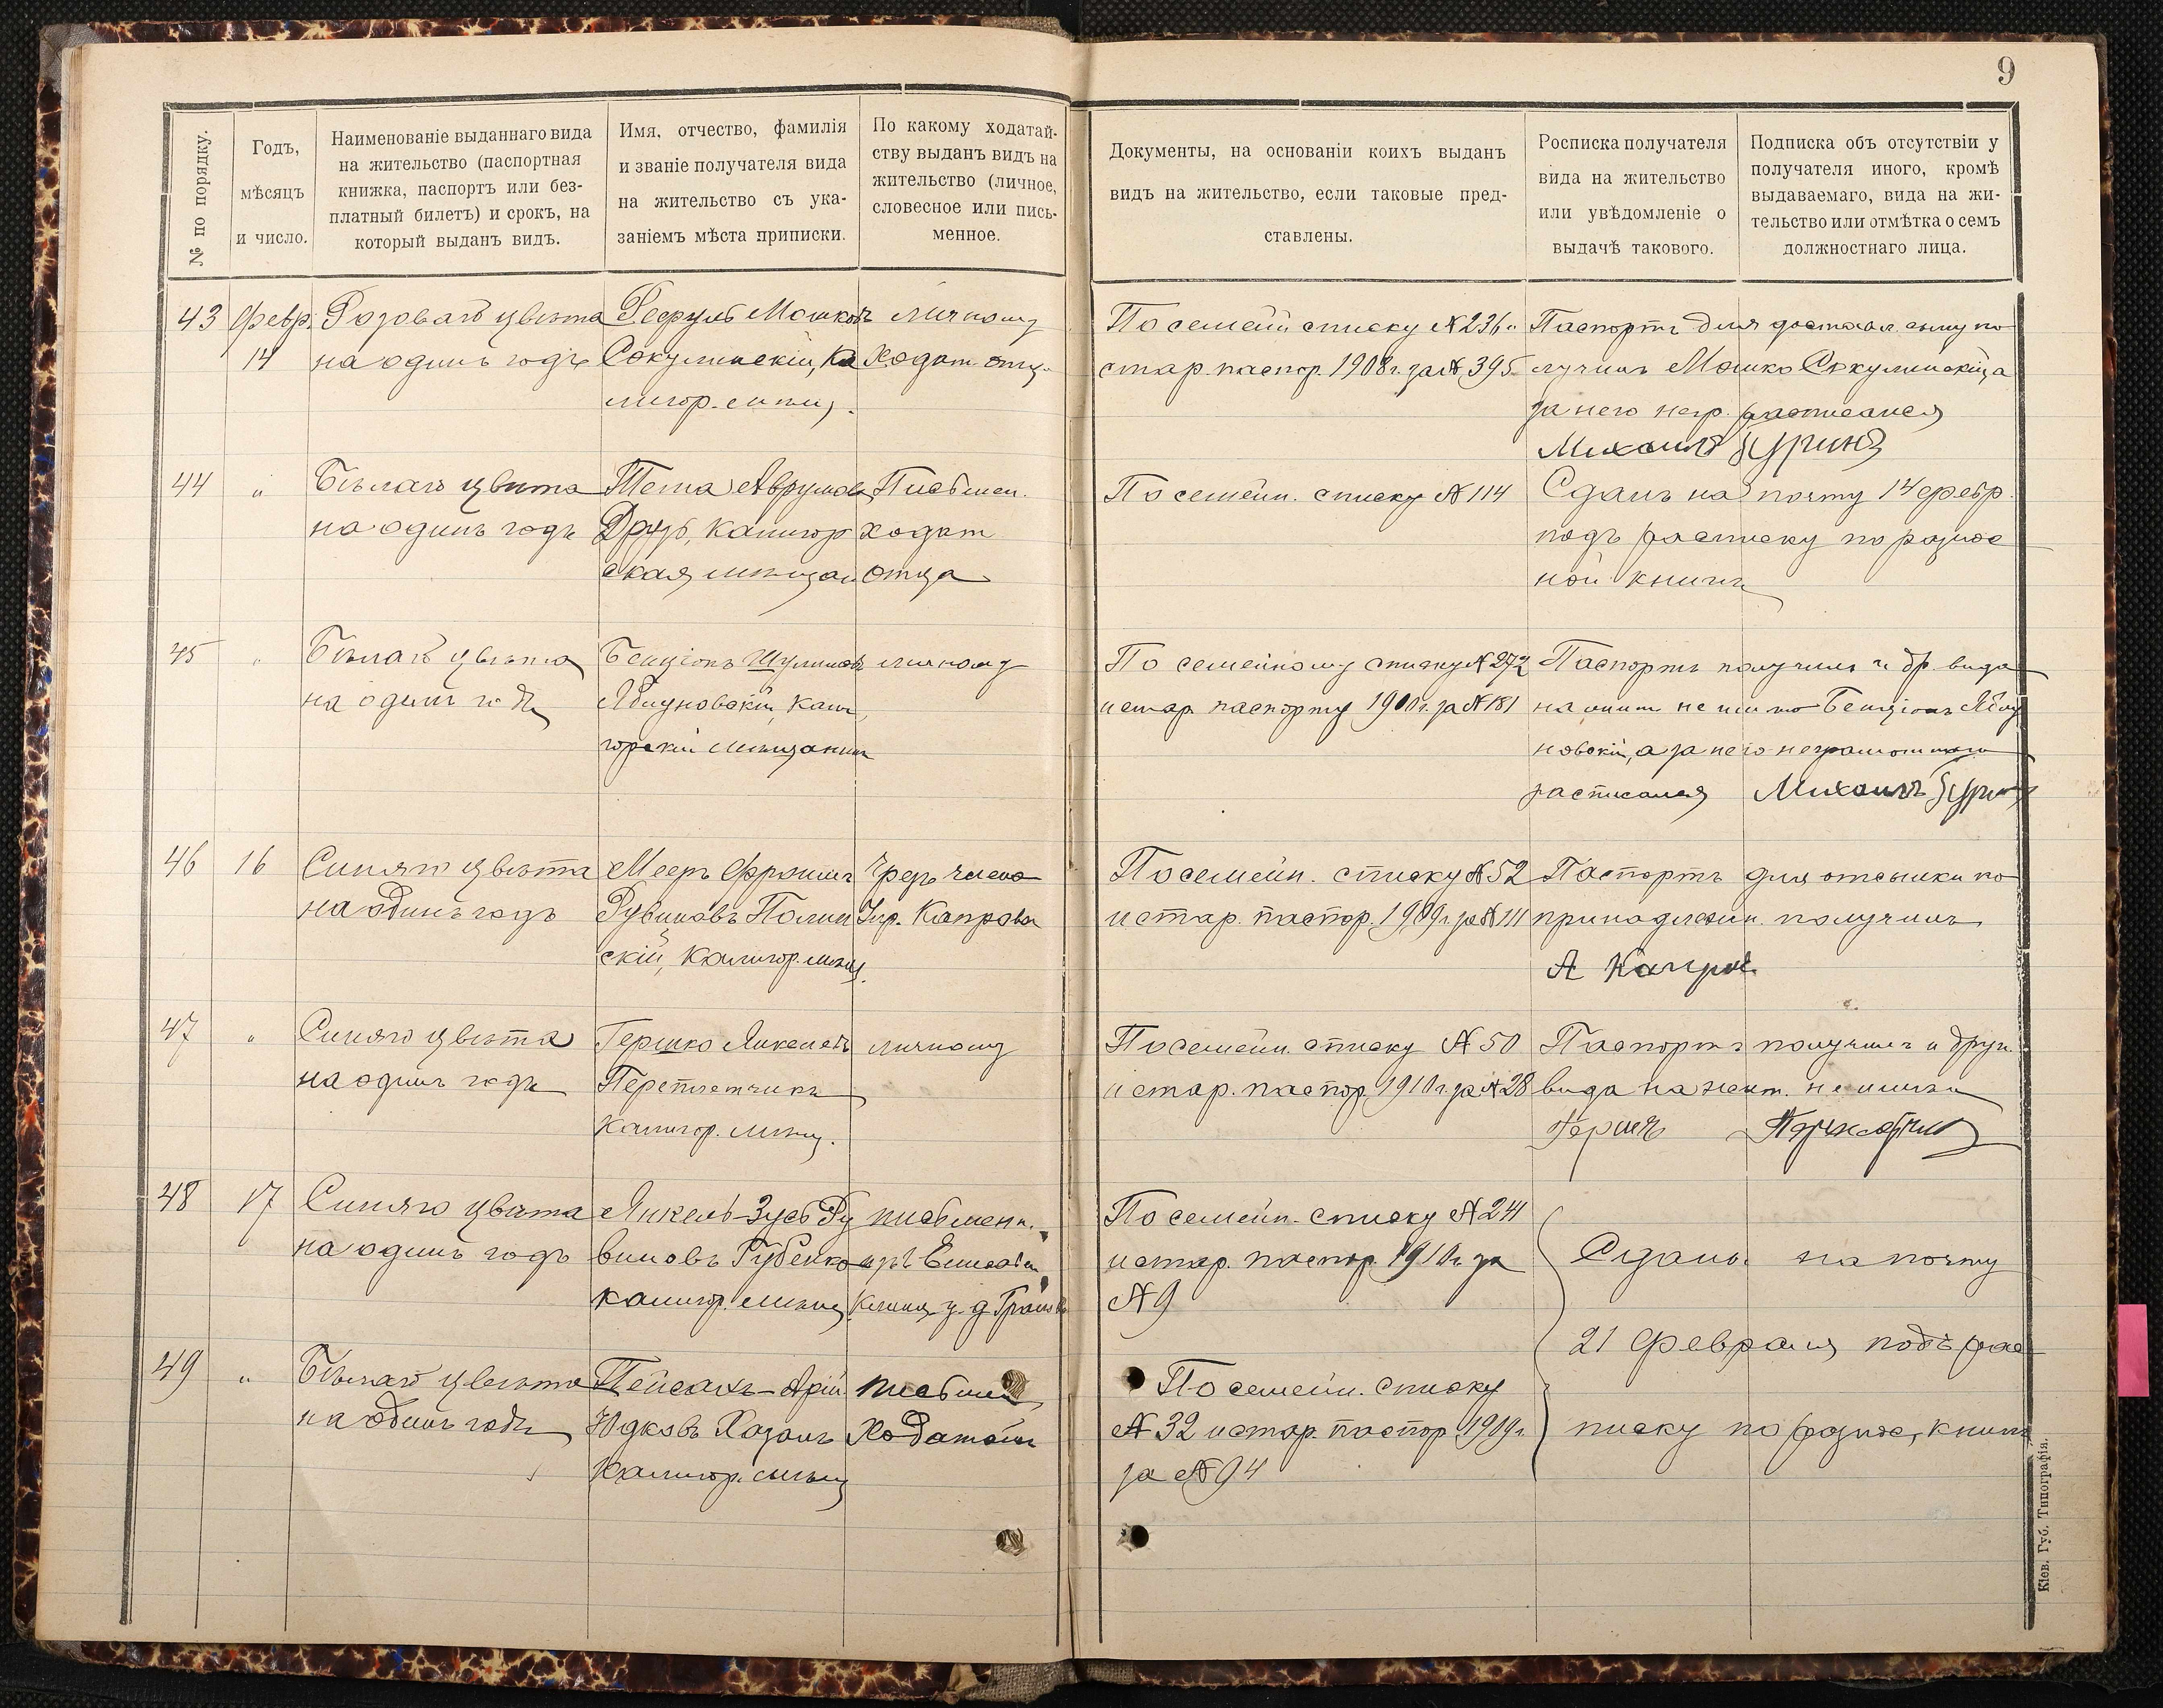 9
№ по порядку.
Годъ,
мѣсяцъ
и число.
Наименованіе выданнаго вида
на жительство (паспортная
книжка, паспортъ или без-
платный билетъ) и срокъ, на
который выданъ видъ.
Имя, отчество, фамилія
и званіе получателя вида
на жительство съ ука-
заніемъ мѣста приписки.
По какому ходатай-
ству выданъ видъ на
жительство (личное,
словесное или пись-
менное.
Документы, на основаніи коихъ выданъ
видъ на жительство, если таковые пред-
ставлены.
Росписка получателя
вида на жительство
или увѣдомленіе о
выдачѣ таковаго.
Подписка объ отсутствіи у
получателя иного, кромѣ
выдаваемаго, вида на жи-
тельство или отмѣтка о семъ
должностнаго лица.
43
Февр.
14
Розоваго цвѣта
на одинъ годъ
Мошковъ
Сокулинскій, Ка
лигор. мѣщ.
личному
Ходат. отц.
По семейн списку № 236 и
стар. паспор. 1908 г. за № 395
Паспортъ для доставл. сыну по
лучилъ Мошко Сокулинскій, а
за него негр. расписался
Михаилъ
44
"
Бѣлаго цвѣта
на одинъ годъ
Аврумова
Друзь, Калигор
ская мѣщан
Письмен.
ходат
отца
По семейн. списку № 114
Сданъ на почту 14 февр.
подъ расписку по разнос
ной книгѣ
45
"
Бѣлаго цвѣта
на одинъ годъ
Бенціонъ Шулимовъ
Калиг
горскій мѣщанинъ
личному
По семейному списку № 272
и стар. паспорту 1910 г. за № 181
Паспортъ получилъ и др. вида
на жит. не имѣю Бенціонъ
новскій, а за него неграмотнаго
расписался Михаилъ
46
16
Синяго цвѣта
на одинъ годъ
Мееръ Фроимъ
Рувиновъ Полин
скій, Калигор. мѣщ.
Чрезъ члена
Упр. Капрова
По семейн. списку № 52
и стар. паспор. 1909 г. за № 111
Паспортъ для отсылки по
принадлежн. получилъ
А Капров
47
"
Синяго цвѣта
на одинъ годъ
Гершко Янкелевъ
Переплетчикъ
Калигор. мѣщ.
личному
По семейн. списку № 50
и стар. паспор. 1910 г. за № 28
Паспортъ получилъ и друг.
вида на жит. не имѣю
Гершъ
48
17
Синяго цвѣта
на одинъ годъ
Янкель-Зусь Ру
виновъ Рубенко
калигор. мѣщ.
письменн.
По семейн. списку № 24
и стар. паспор. 1910 г. за
№ 9
Сданъ на почту
21 Февраля подъ рас
писку по разнос, книгѣ
49
"
Бѣлаго цвѣта
на одинъ годъ
Пейсахъ-Арій
Юдковъ Хазанъ
Калигор. мѣщ
письмен
Ходатайст
По семейн. списку
№ 32 и стар. паспор 1909 г.
за № 94
Кіев. Губ. Типографія.